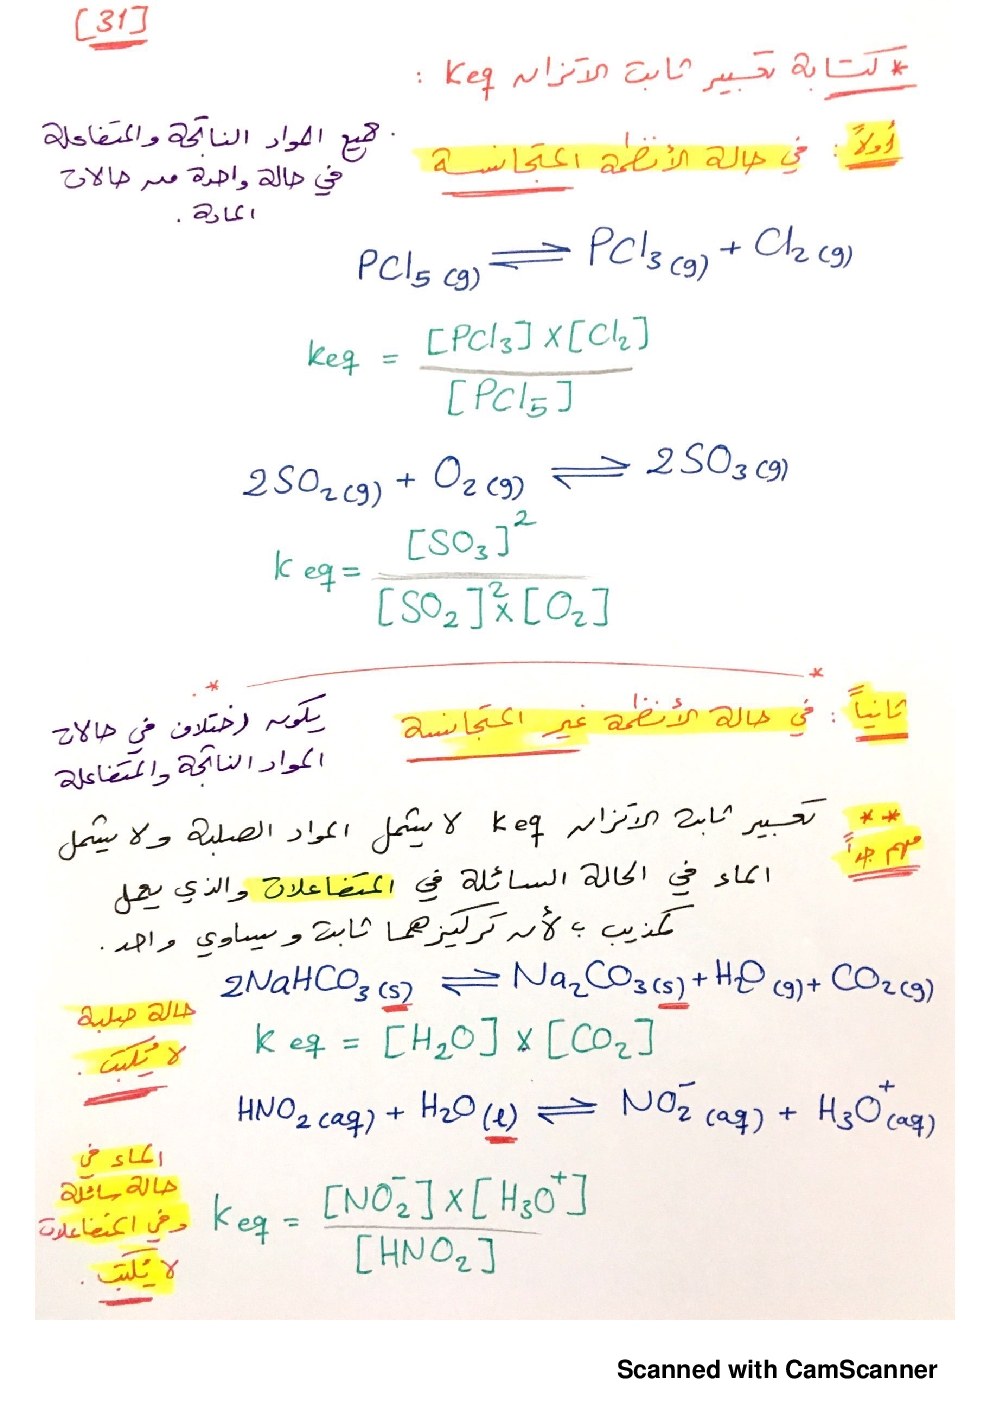 [31]
* كتابة تعبير ثابت الاتزان Keq :
أولاً : في حالة الأنظمة المتجانسة
. جميع المواد الناتجة والمتفاعلة
في حالة واحدة من حالات
المادة .
PCl5 (g) ⇌ PCl3 (g) + Cl2 (g)
keq = [PCl3] x [Cl2]
[PCl5]
2SO2 (g) + O2 (g) ⇌ 2SO3 (g)
keq = [SO3]²
[SO2]² x [O2]
* *
ثانياً : في حالة الأنظمة غير المتجانسة
يكون اختلاف في حالات
المواد الناتجة والمتفاعلة
** تعبير ثابت الاتزان keq لا يشمل المواد الصلبة ولا يشمل
مهم جداً
الماء في الحالة السائلة في المتفاعلات والذي يعمل
كمذيب ؛ لأن تركيزهما ثابت ويساوي واحد .
2NaHCO3 (s) ⇌ Na2CO3 (s) + H2O (g) + CO2 (g)
حالة صلبة
لا تُكتب .
keq = [H2O] x [CO2]
HNO2 (aq) + H2O (l) ⇌ NO2⁻ (aq) + H3O⁺ (aq)
الماء في
حالة سائلة
وفي المتفاعلات
لا يُكتب .
keq = [NO2⁻] x [H3O⁺]
[HNO2]
Scanned with CamScanner